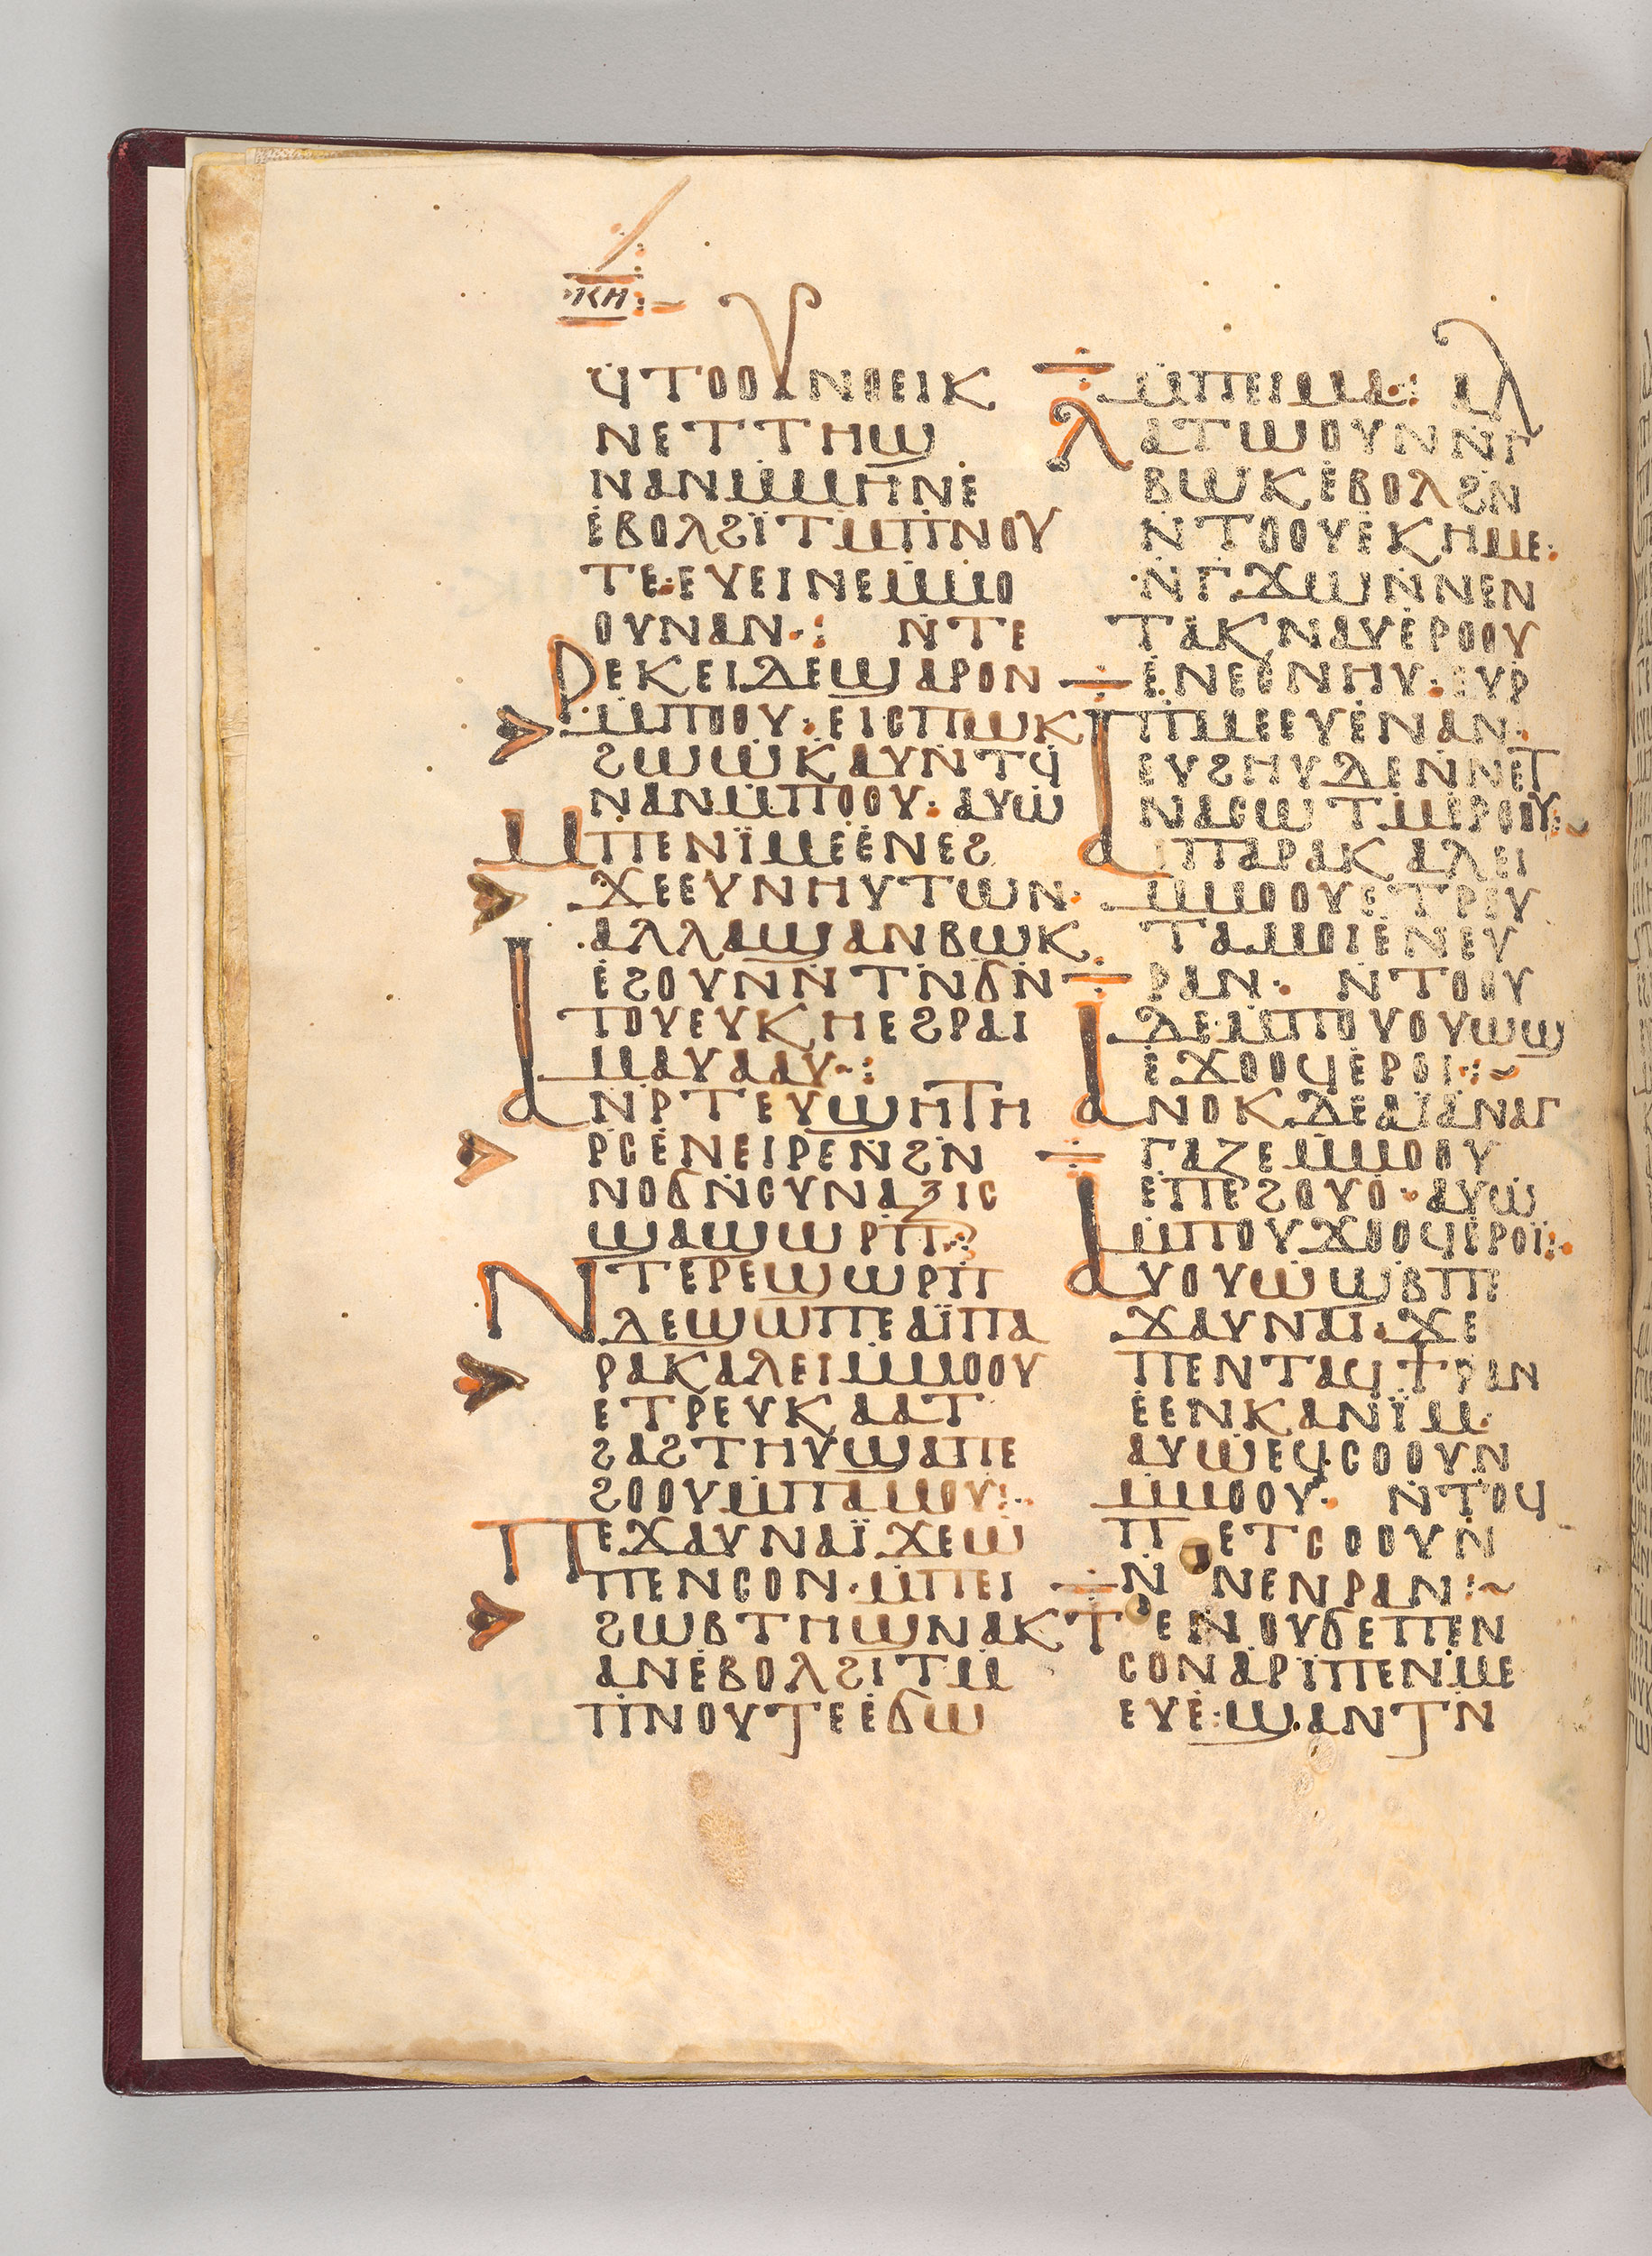 ⲕⲏ
ϥⲧⲟⲟⲩⲛⲟⲉⲓⲕ
ⲛⲉⲧⲧⲏϣ
ⲛⲁⲛⲙⲙⲏⲛⲉ
ⲉⲃⲟⲗϩⲓ̈ⲧⲙⲡⲛⲟⲩ
ⲧⲉ·ⲉⲩⲉⲓⲛⲉⲙⲙⲟ
ⲟⲩⲛⲁⲛ·: ⲛⲧⲉ
ⲣⲉⲕⲉⲓⲇⲉϣⲁⲣⲟⲛ
ⲙⲡⲟⲟⲩ·ⲉⲓⲥⲡⲱⲕ
ϩⲱⲱⲕⲁⲩⲛⲧϥ
ⲛⲁⲛⲙⲡⲟⲟⲩ·ⲁⲩⲱ
ⲙⲡⲉⲛⲓ̈ⲙⲉⲉⲛⲉϩ
ϫⲉⲉⲩⲛⲏⲩⲧⲱⲛ·
ⲁⲗⲗⲁϣⲁⲛⲃⲱⲕ
ⲉϩⲟⲩⲛⲛⲧⲛϭⲛ
ⲧⲟⲩⲉⲩⲕⲏⲉϩⲣⲁⲓ
ⲙⲁⲩⲁⲁⲩ·:
ⲁⲛⲣⲧⲉⲩϣⲏⲧⲏ
ⲣⲥⲉⲛⲉⲓⲣⲉⲛϩⲛ
ⲛⲟϭⲛⲥⲩⲛⲁⲝⲓⲥ
ϣⲁϣⲱⲣⲡ·:
ⲛⲧⲉⲣⲉϣⲱⲣⲡ
ⲇⲉϣⲱⲡⲉⲁⲓ̈ⲡⲁ
ⲣⲁⲕⲁⲗⲉⲓⲙⲙⲟⲟⲩ
ⲉⲧⲣⲉⲩⲕⲁⲁⲧ
ϩⲁϩⲧⲏⲩϣⲁⲡⲉ
ϩⲟⲟⲩⲙⲡⲁⲙⲟⲩ:·
ⲡⲉϫⲁⲩⲛⲁⲓ̈ϫⲉⲱ
ⲡⲉⲛⲥⲟⲛ·ⲙⲡⲉⲓ
ϩⲱⲃⲧⲏϣⲛⲁⲕ
ⲁⲛⲉⲃⲟⲗϩⲓⲧⲙ
ⲡⲛⲟⲩⲧⲉⲉϭⲱ
ⲙⲡⲉⲓⲙⲁ·: ⲁⲗ
ⲗⲁⲧⲱⲟⲩⲛⲛⲅ
ⲃⲱⲕⲉⲃⲟⲗϩⲛ
ⲛⲧⲟⲟⲩⲉⲕⲏⲙⲉ·
ⲛⲅϫⲱⲛⲛⲉⲛ
ⲧⲁⲕⲛⲁⲩⲉⲣⲟⲟⲩ
ⲉⲛⲉⲥⲛⲏⲩ·ⲉⲩⲣ
ⲡⲙⲉⲉⲩⲉⲛⲁⲛ·
ⲉⲩϩⲏⲩⲇⲉⲛⲛⲉⲧ
ⲛⲁⲥⲱⲧⲙⲉⲣⲟⲟⲩ:
ⲁⲓⲡⲁⲣⲁⲕⲁⲗⲉⲓ
ⲙⲙⲟⲟⲩⲉⲧⲣⲉⲩ
ⲧⲁⲙⲟⲓⲉⲛⲉⲩ
ⲣⲁⲛ· ⲛⲧⲟⲟⲩ
ⲇⲉⲙⲡⲟⲩⲟⲩⲱϣ
ⲉϫⲟⲟϥⲉⲣⲟⲓ·:~
ⲁⲛⲟⲕⲇⲉⲁⲓ̈ⲁⲛⲁⲅ
ⲅⲁⲍⲉⲙⲙⲟⲟⲩ
ⲉⲡⲉϩⲟⲩⲟ·ⲁⲩⲱ
ⲙⲡⲟⲩϫⲟⲟϥⲉⲣⲟⲓ̈:·
ⲁⲩⲟⲩⲱϣⲃⲡⲉ
ϫⲁⲩⲛⲁⲓ·ϫⲉ
ⲡⲉⲛⲧⲁϥϯⲣⲁⲛ
ⲉⲉⲛⲕⲁⲛⲓ̈ⲙ·
ⲁⲩⲱⲉϥⲥⲟⲟⲩⲛ
ⲙⲙⲟⲟⲩ· ⲛⲧⲟϥ
ⲡ ⲉⲧⲥⲟⲟⲩⲛ
ⲛ ⲛⲉⲛⲣⲁⲛ:~
ⲧⲉⲛⲟⲩϭⲉⲡⲉⲛ
ⲥⲟⲛⲁⲣⲓⲡⲉⲛⲙⲉ
ⲉⲩⲉ·ϣⲁⲛⲧⲛ